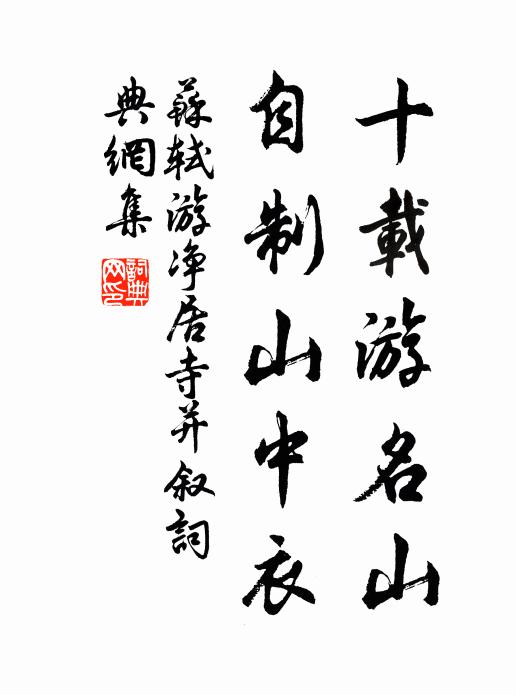 十載游名山
自制山中衣
蘇軾游净居寺并叙詞
典網集
詞典
网印